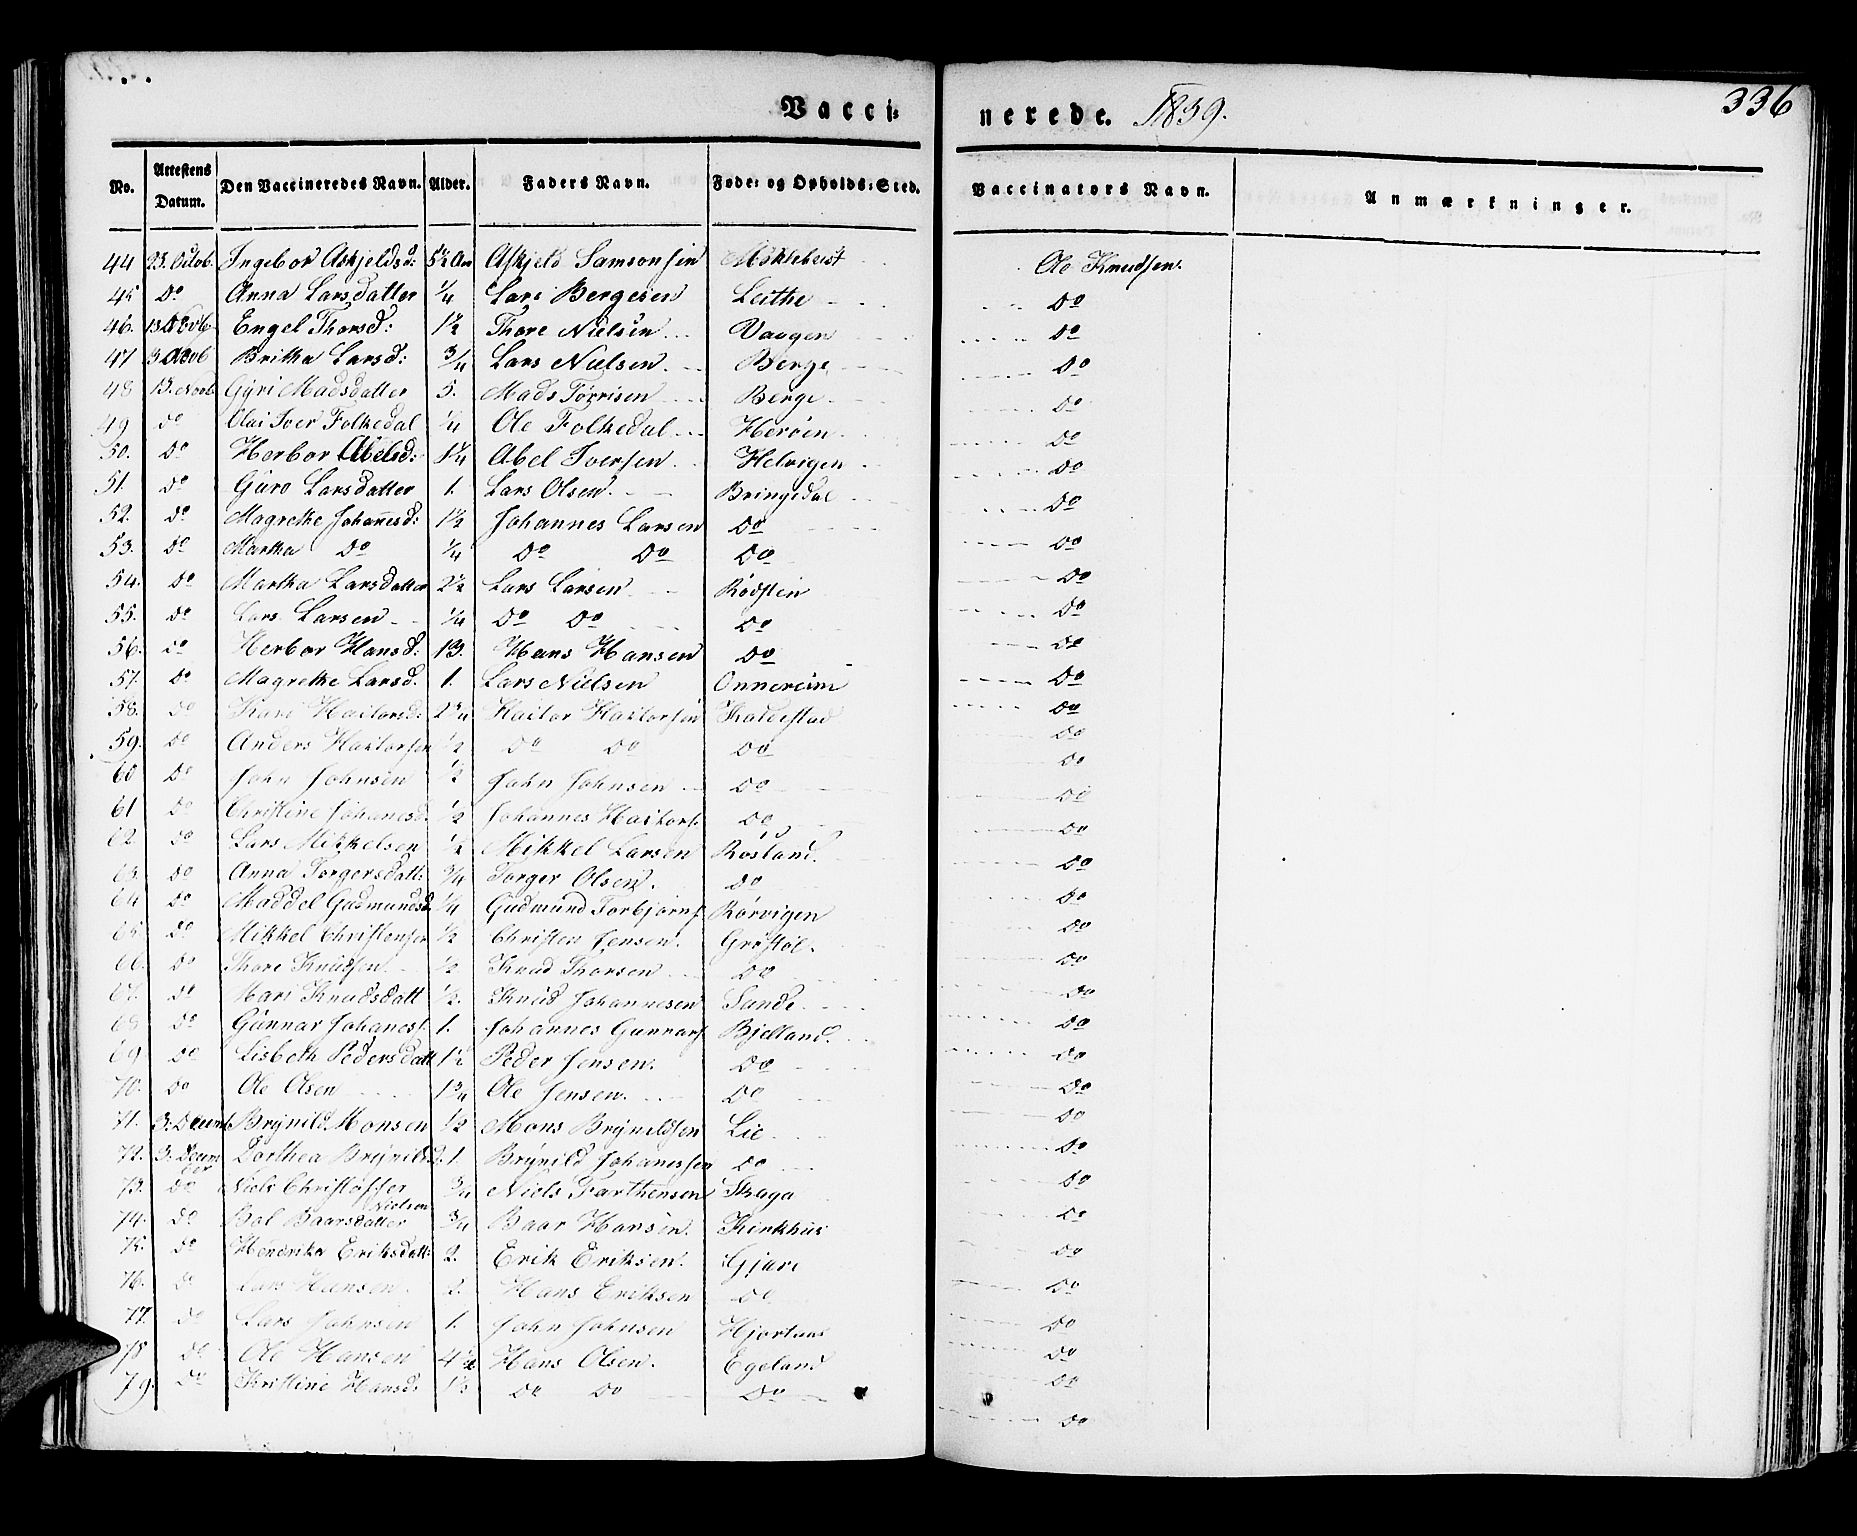 336
Vacci- nerede. 1839.
No. Attestens Datum. Den Vaccineredes Navn. Alder. Faders Navn. Føde- og Opholds-Sted. Vaccinators Navn. Anmærkninger.
44 23. Octob. Ingebor Askjeldsd: 5½ Aar Askjeld Samsonsen Møklebust Ole Knudsen.
45 Do Anna Larsdatter ¼ Lars Bergesen Leithe Do
46. 13 Novb Engel Thorsd: 1½ Thore Nielsen Vaagen Do
47 3 Britha Larsd: ¾ Lars Nielsen. Berge Do
48 13. Novb Gÿri Madsdatter 5. Mads Tørrisen Berge Do
49 do Olai Iver Folkedal ¼ Ole Folkedal Herøen Do
50. do Herbor Abelsd: 1¼ Abel Iversen Helvigen Do
51. do Guro Larsdatter 1. Lars Olsen. Bringedal Do
52. do Magrethe Johannesd: 1½ Johannes Larsen Do Do
53. do Martha Do ¼ Do Do Do Do
54. do Martha Larsdatter 2½ Lars Larsen Rødstein Do
55. do Lars Larsen ¼ Do Do Do Do
56. do Herbor Hansd: 13. Hans Hansen Do Do
57. do Magrethe Larsd. 1. Lars Nielsen Onnereim Do
58. do Kari Haktorsd: 2¾ Haktor Haktorsen Kaldestad Do
59. do Anders Haktorsen ½ Do Do Do Do
60 do John Johnsen ½ John Johnsen Do Do
61 do Christine Johanesd. ½ Johannes Haktors: Do Do
62 do Lars Mikkelsen ½ Mikkel Larsen Røsland. Do
63. do Anna Torgersdatt: ¾ Torger Olsen. do Do
64 do Maddel Gudmundsd. ¼ Gudmund Torbjørns: Rørvigen Do
65 do Mikkel Christensen ½ Christen Jensen. Do
66. do Thore Knudsen ½ Knud Thorsen Do Do
67. do Mari Knudsdatt ½. Knud Johannesen Sunde Do
68 do Gunnar Johanes: 1. Johannes Gunnars: Bjelland. Do
69 do Lisbeth Pedersdatt 1½ Peder Jensen. Do Do
70. do Ole Olsen 1¾ Ole Jensen. Do Do
71. 3. Decemb Brÿnild Monsen ½ Mons Brÿnildsen Lie Do
72. 3. Decem ber Dorthea Brÿnilsd. 1. Brÿnild Johanessen Do Do
73. do Niels Christoffer Nielsen ¾ Niels Farthensen Skaga Do
74. do Bol Baarsdatter ¾ Baar Hansen. Kirkhus Do
75. do Hendrika Eriksdatt: 2. Erik Eriksen. Gjære Do
76. do Lars Hansen 2. Hans Eriksen Do Do
77. do Lars Johnsen 1. John Johnsen Hjortaas Do
78 do Ole Hansen 4½ Hans Olsen. Egeland Do
79. do Kristine Hansd: Do Do Do Do